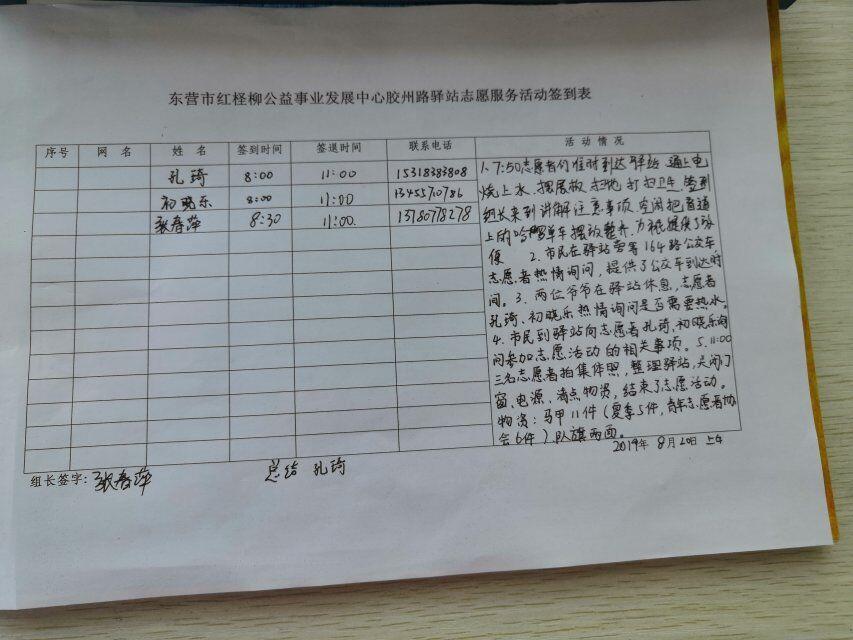 东营市红柽柳公益事业发展中心胶州路驿站志愿服务活动签到表
序号 网名 姓名 签到时间 签退时间 联系电话 活动情况
孔琦 8:00 11:00 15318383808
初晓乐 8:00 11:00 13455710786
张春萍 8:30 11:00 13780778278
1. 7:50志愿者们准时到达驿站 通上电
烧上水、摆展板、扫地、打扫卫生、签到
组长来到讲解注意事项、空闲把盲道
上的哈啰单车摆放整齐、为市民提供了方
便 2. 市民在驿站旁等164路公交车
志愿者热情询问，提供了公交车到达时
间。3. 两位爷爷在驿站休息，志愿者
孔琦、初晓乐热情询问是否需要热水
4. 市民到驿站向志愿者孔琦、初晓乐询
问参加志愿活动的相关事项。5. 11:00
三名志愿者拍集体照，整理驿站，关闭门
窗、电源、清点物资，结束了志愿活动。
物资：马甲11件（夏季5件，青年志愿者协
会6件）队旗两面。
2019年8月20日 上午
组长签字：张春萍 总结 孔琦